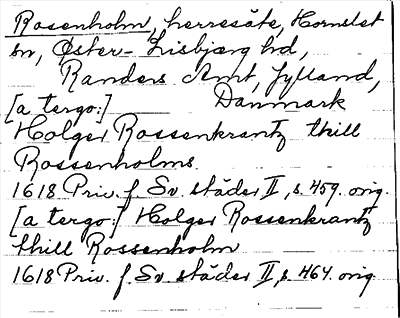 Rosenholm, herresäte, Hornslet
sn, Øster-Lisbjærg hd,
Randers Amt, Jylland,
[a tergo:] Danmark
Holger Rossenkrantz thill
Rossenholms.
1618 Priv. f. Sv. städer II, s. 459. orig.
[a tergo:] Holger Rossenkrantz
thill Rossenholm
1618 Priv. f. Sv. städer II, s. 464. orig.